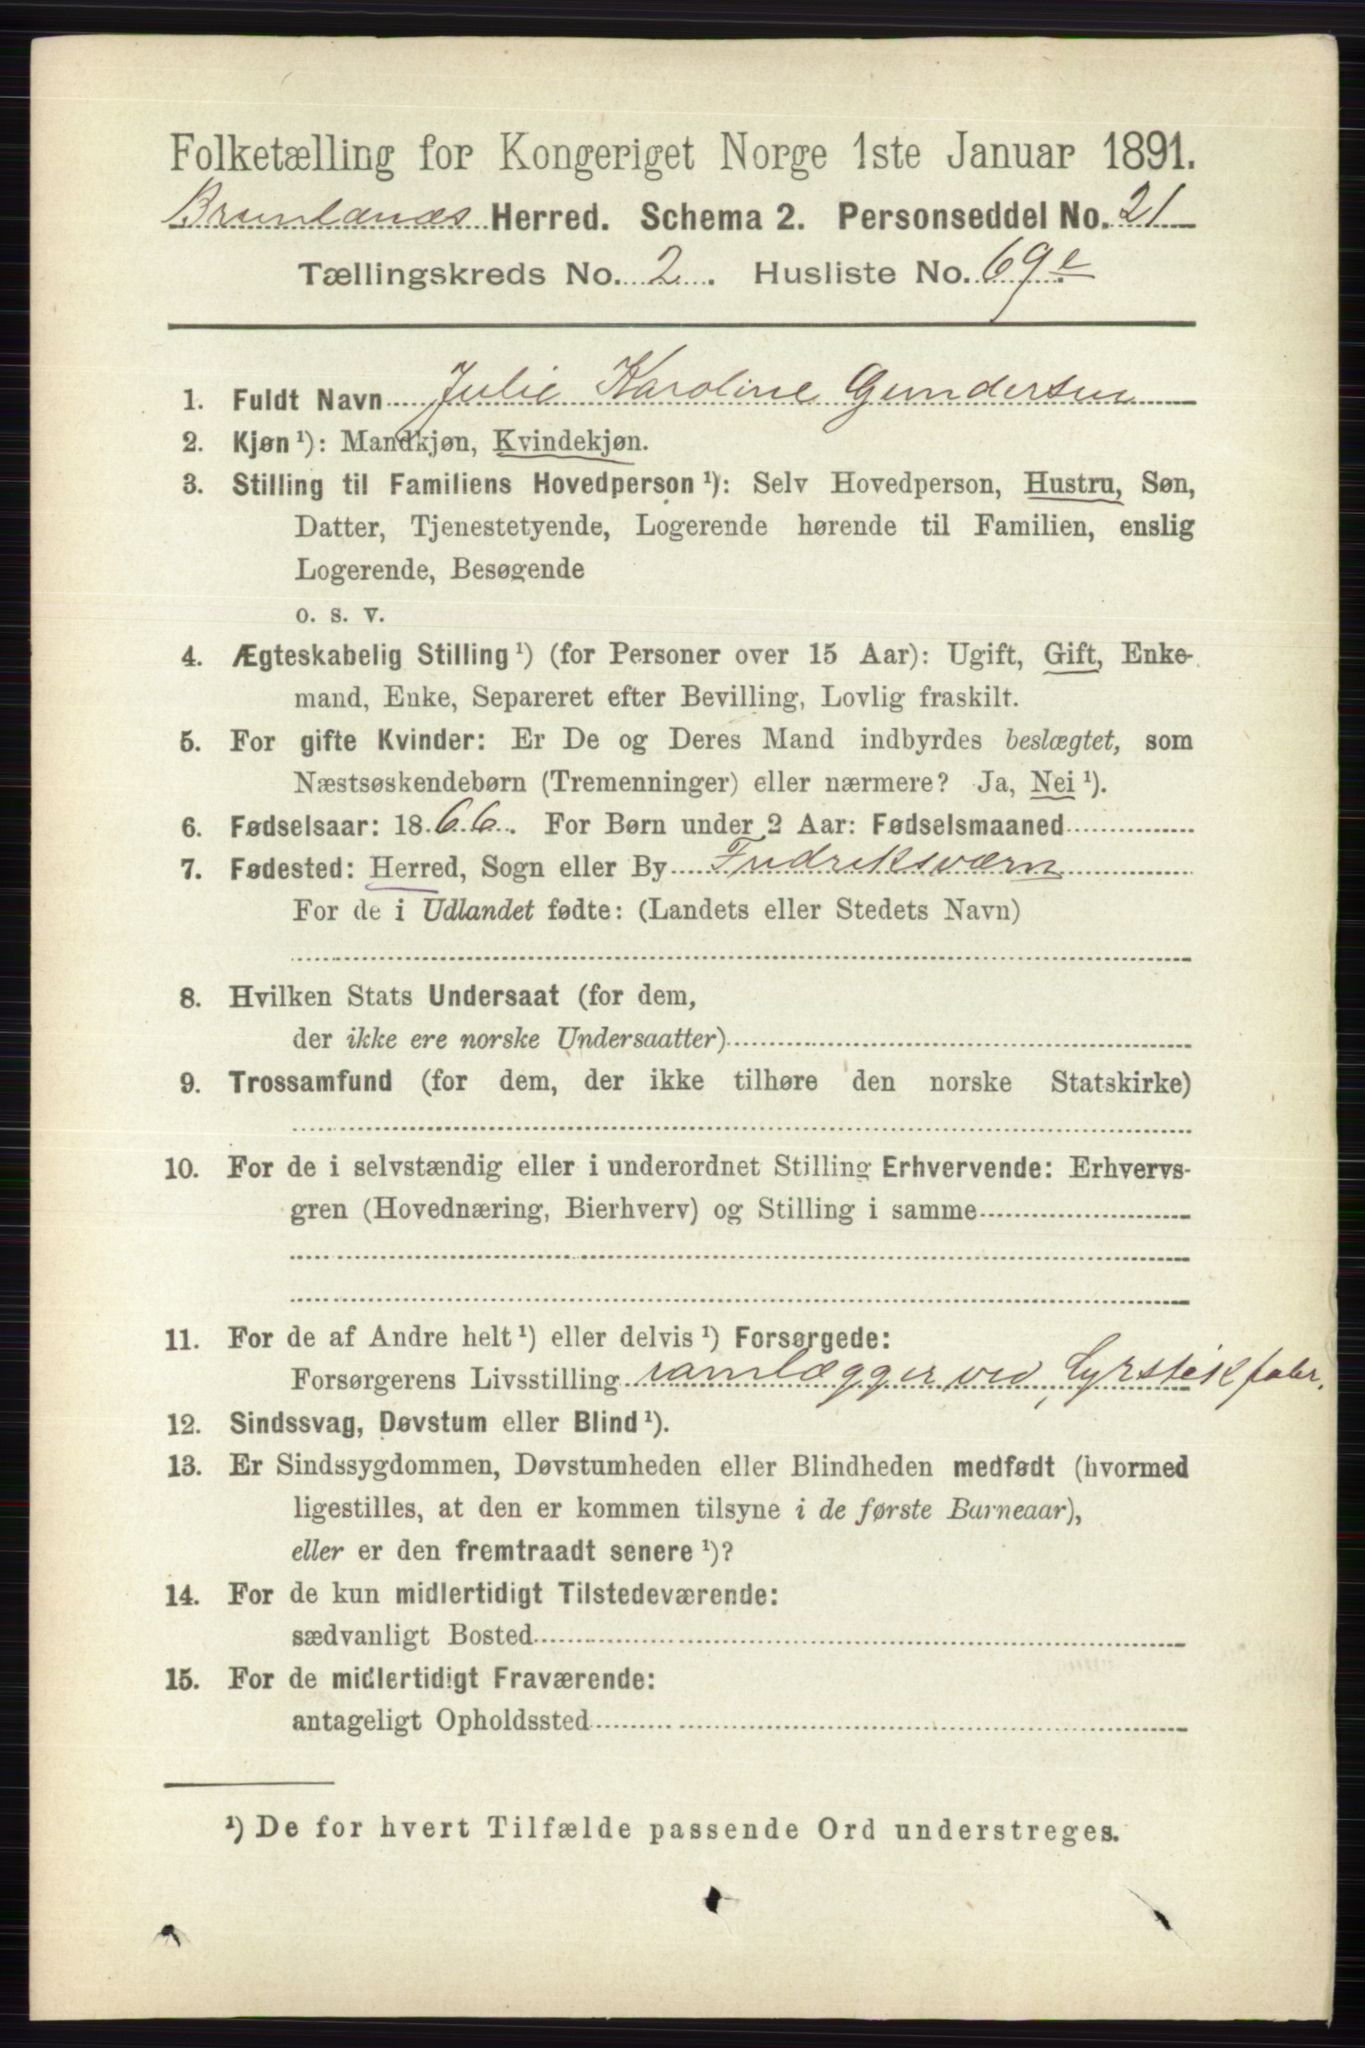 Folketælling for Kongeriget Norge 1ste Januar 1891.
Brunlanæs Herred. Schema 2. Personseddel No. 21
Tællingskreds No. 2. Husliste No. 69e
1. Fuldt Navn Julie Karoline Gundersen
2. Kjøn¹): Mandkjøn, Kvindekjøn.
3. Stilling til Familiens Hovedperson¹): Selv Hovedperson, Hustru, Søn,
Datter, Tjenestetyende, Logerende hørende til Familien, enslig
Logerende, Besøgende
o. s. v.
4. Ægteskabelig Stilling¹) (for Personer over 15 Aar): Ugift, Gift, Enke-
mand, Enke, Separeret efter Bevilling, Lovlig fraskilt.
5. For gifte Kvinder: Er De og Deres Mand indbyrdes beslægtet, som
Næstsøskendebørn (Tremenninger) eller nærmere? Ja, Nei¹).
6. Fødselsaar: 1866. For Børn under 2 Aar: Fødselsmaaned
7. Fødested: Herred, Sogn eller By Fredriksværn
For de i Udlandet fødte: (Landets eller Stedets Navn)
8. Hvilken Stats Undersaat (for dem,
der ikke ere norske Undersaatter)
9. Trossamfund (for dem, der ikke tilhøre den norske Statskirke)
10. For de i selvstændig eller i underordnet Stilling Erhvervende: Erhvervs-
gren (Hovednæring, Bierhverv) og Stilling i samme
11. For de af Andre helt¹) eller delvis¹) Forsørgede:
Forsørgerens Livsstilling ramlægger ved Fyrstikfabr.
12. Sindssvag, Døvstum eller Blind¹).
13. Er Sindssygdommen, Døvstumheden eller Blindheden medfødt (hvormed
ligestilles, at den er kommen tilsyne i de første Barneaar),
eller er den fremtraadt senere¹)?
14. For de kun midlertidigt Tilstedeværende:
sædvanligt Bosted
15. For de midlertidigt Fraværende:
antageligt Opholdssted
¹) De for hvert Tilfælde passende Ord understreges.